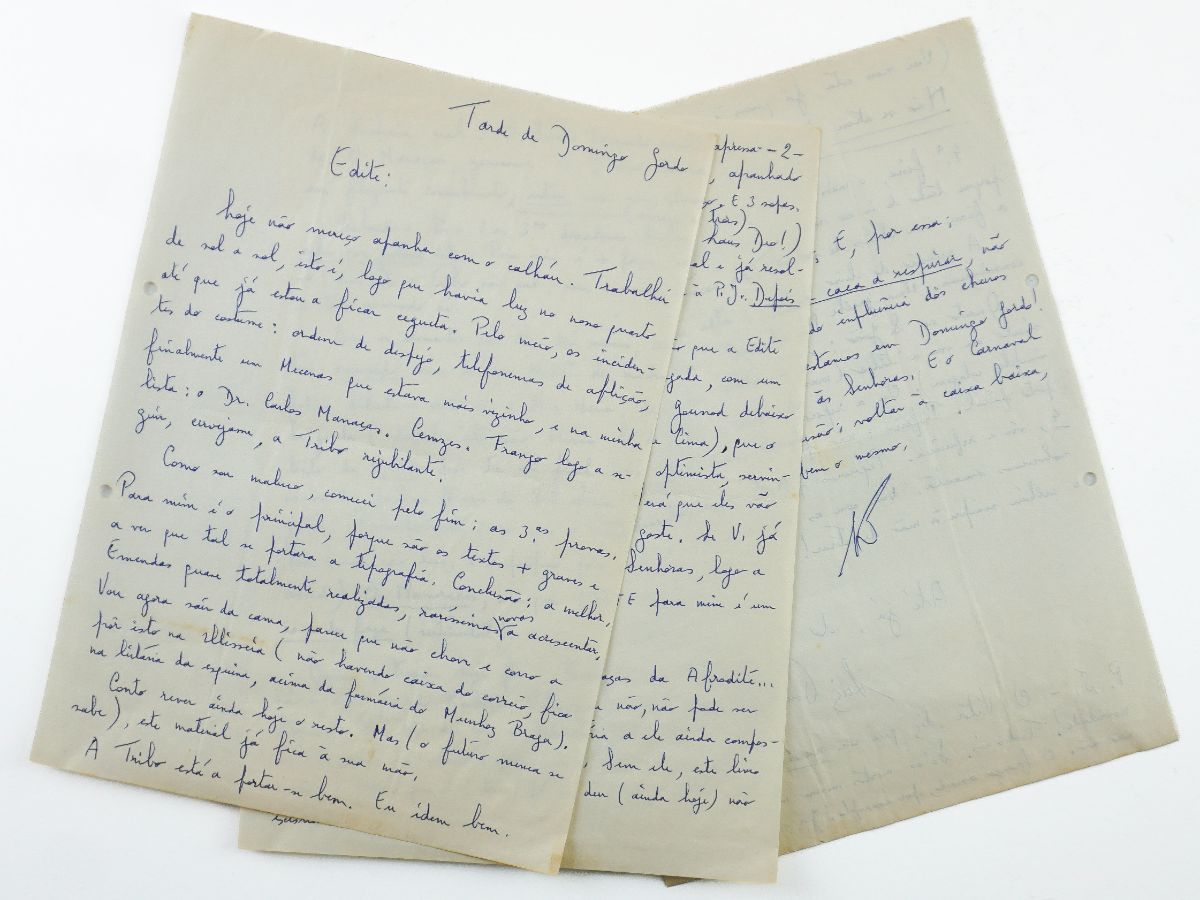 Tarde de Domingo Gordo
Edite:
hoje não mereço apanhar com o calhau. Trabalhei
de sol a sol, isto é, logo que havia luz no nosso quarto
até que já estou a ficar cegueta. Pelo meio, os inciden-
tes do costume: ordem de despejo, telefonemas de aflição,
finalmente um Mecenas que estava mais vizinho, e na minha
lista: o Dr. Carlos Manaças. Cemzes. Frango logo a se-
guir, cervejame, a Tribo rejubilante.
Como sou maluco, comecei pelo fim: as 3.as provas.
Para mim é o principal, porque são os textos + graves e
a ver que tal se portara a tipografia. Conclusão: a melhor.
Emendas quase totalmente realizadas, raríssimas novas a acrescentar.
Vou agora sair da cama, parece que não chove e corro a
pôr isto na Ulisseia (não havendo caixa do correio, fica
na leitaria da esquina, acima da farmácia do Munhoz Braga).
Conto rever ainda hoje o resto. Mas (o futuro nunca se
sabe), este material já fica à sua mão.
A Tribo está a portar-se bem. Eu idem bem.
apressa - 2 -
, apanhado
. E 3 sopas.
tras)
haus Deo!)
al e já resol-
à P.J.. Depois
ão que a Edite
gada, com um
Gounod debaixo
e cima), que o
optimista, servin-
erá que eles vão
goste. Se V. já
Senhoras, logo a
E para mim é um
aças da Afrodite...
u não, não pode ser
ria a ele ainda compos-
. Sem ele, este livro
deu (ainda hoje) não
E, por essa;
caca a respirar, não
do influência dos cheiros
estamos em Domingo Gordo!
às Senhoras. E o Carnaval
usão; voltar à caixa baixa,
bem o mesmo.